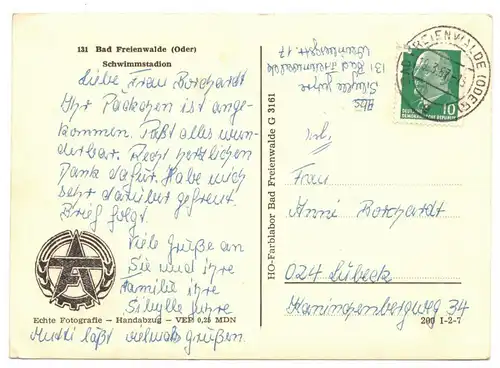 131 Bad Freienwalde (Oder)
Schwimmstadion
Liebe Frau Borchardt
Ihr Päckchen ist ange-
kommen. Paßt alles wun-
derbar. Recht herzlichen
Dank dafür. Habe mich
sehr darüber gefreut.
Brief folgt.
Viele Grüße an
Sie und ihre
Familie ihre
Sibylle
Mutti läßt vielmals grüßen.
Echte Fotografie — Handabzug — VEP 0,25 MDN
HO-Farblabor Bad Freienwalde G 3161
Abs.
Sibylle
131 Bad Freienwalde
17
FREIENWALDE (ODER)
10
DEUTSCHE
DEMOKRATISCHE REPUBLIK
Frau
Anni Borchardt
024 Lübeck
34
200 I-2-7